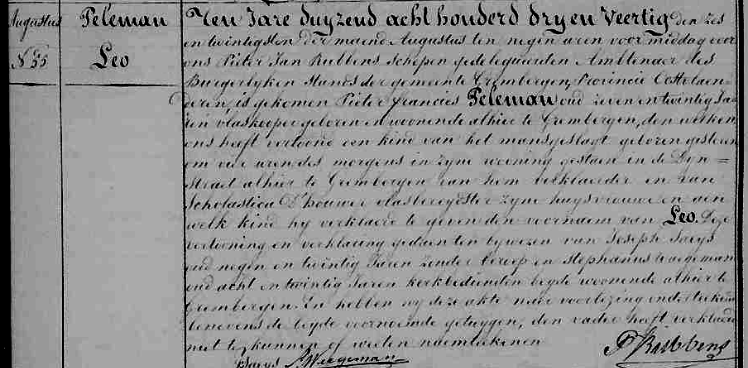 Augustus
N 55
Peleman
Leo
Ten Jare duyzend acht honderd dry en veertig den zes
en twintigsten der maend Augustus ten negen uren voormiddag voor
ons Pieter Jan Rubbens Schepen gedelegueerden Ambtenaer des
Burgerlyken Stands der gemeente Grembergen, Provincie Oostvlaen
deren, is gekomen Pieter francies Peleman oud zeven en twintig Ja
ren vlaskooper geboren en woonende alhier te Grembergen, den welken
ons heeft vertoond een kind van het mansgeslagt geboren gisteren
om vier uren des morgens in zyne wooning gestaen in de Dyk=
straet alhier te Grembergen van hem verklaerder en van
Scholastica D'hauwer vlasbereydster zyne huysvrouwe en aen
welk kind hy verklaerd te geven den voornaem van Leo. Deze
vertooning en verklaring gedaen ten bywezen van Joseph Saeys
oud negen en twintig Jaren zonder beroep en Stephanus Waegeman
oud acht en twintig Jaren kerkbedienden beyde woonende alhier te
Grembergen. En hebben wy deze akte naer voorlezing onderteekend
benevens de beyde voornoemde getuygen, den vader heeft verklaerd
niet te kunnen of weten naemteekenen
Saeys S. Wegeman P. J. Rubbens